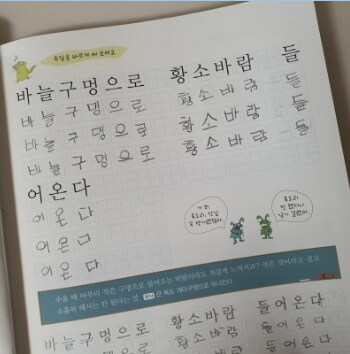 속담을 바르게 써 보세요
바늘구멍으로 황소바람 들
바늘구멍으로 황소바람 들
바늘구멍으로 황소바람 들
바늘구멍으로 황소바람 들
어온다
어온다
어온다
어온다
추울 때 아무리 작은 구멍으로 들어오는 바람이라도 차갑게 느껴지고? 작은 것이라고 결코
소홀히 해서는 안 된다는 말. 큰 둑도 개미구멍으로 무너진다.
바늘구멍으로 황소바람 들어온다
바늘구멍으로 황소바람 들어온다